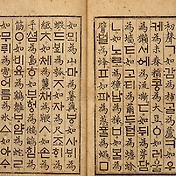 初聲ㄱ如감爲柿ᄀᆞᆯ爲蘆ㅋ如우
케爲未舂稻콩爲大豆ㆁ如러울
爲獺서에爲流凘ㄷ如뒤爲茅담
爲墻ㅌ如고티爲繭두텁爲蟾蜍
ㄴ如노로爲獐납爲猿ㅂ如ᄇᆞᆯ爲
臂벌爲蜂ㅍ如ᄑᆞ爲葱ᄑᆞᆯ爲蠅ㅁ
如뫼爲山마爲薯藇ㅸ如사ᄫᅵ爲
蝦드ᄫᅴ爲瓠ㅈ如자爲尺죠ᄒᆡ爲
紙ㅊ如체爲籭채爲鞭ㅅ如손爲手
셤爲島ㅎ如부헝爲鵂鶹힘爲
筋ㅇ如비육爲鷄雛ᄇᆞ얌爲蛇ㄹ如
무뤼爲雹어름爲氷ㅿ如아ᅀᆞ